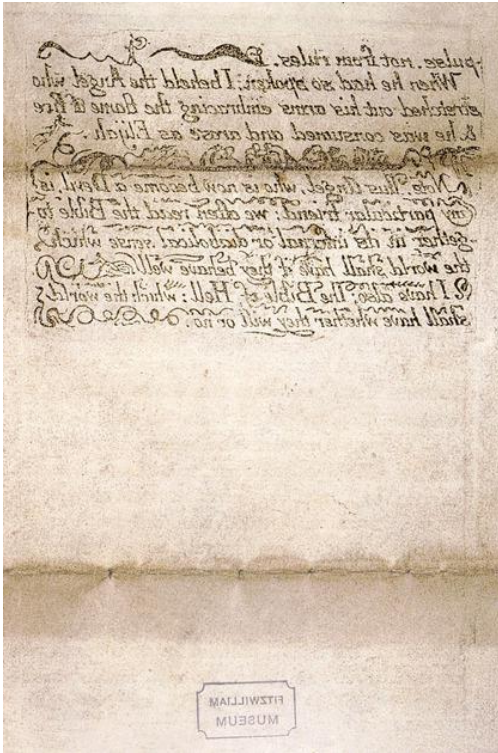 -pulse. not from rules.
When he had so spoken: I beheld the Angel who
stretched out his arms embracing the flame of fire
& he was consumed and arose as Elijah.
Note. This Angel, who is now become a Devil, is
my particular friend: we often read the Bible to
-gether in its infernal or diabolical sense which
the world shall have if they behave well
I have also: The Bible of Hell: which the world
shall have whether they will or no.
FITZWILLIAM
MUSEUM